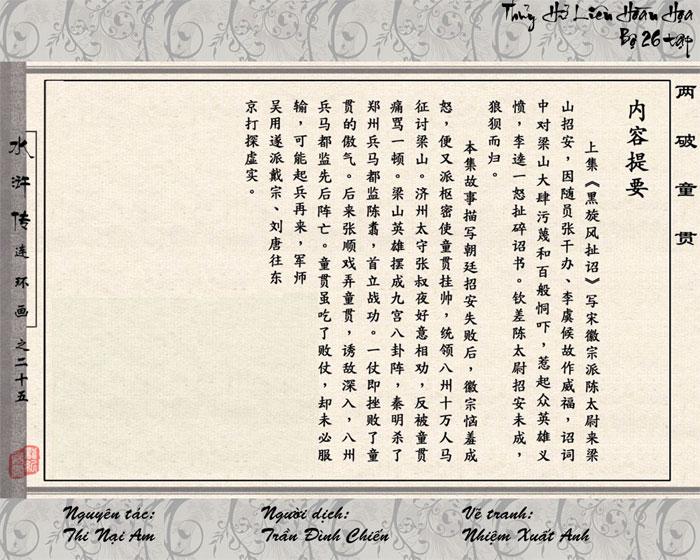 Thủy Hử Liên Hoàn Họa
Bộ 26 tập
两破童贯
内容提要
上集《黑旋风扯诏》写宋徽宗派陈太尉来梁
山招安，因随员张干办、李虞候故作威福，诏词
中对梁山大肆污蔑和百般恫吓，惹起众英雄义
愤，李逵一怒扯碎诏书。钦差陈太尉招安未成，
狼狈而归。
本集故事描写朝廷招安失败后，徽宗恼羞成
怒，便又派枢密使童贯挂帅，统领八州十万人马
征讨梁山。济州太守张叔夜好意相劝，反被童贯
痛骂一顿。梁山英雄摆成九宫八卦阵，秦明杀了
郑州兵马都监陈翥，首立战功。一仗即挫败了童
贯的傲气。后来张顺戏弄童贯，诱敌深入，八州
兵马都监先后阵亡。童贯虽吃了败仗，却未必服
输，可能起兵再来，军师
吴用遂派戴宗、刘唐往东
京打探虚实。
水浒传连环画之二十五
Nguyên tác:
Thi Nại Am
Người dịch:
Trần Đình Chiến
Vẽ tranh:
Nhiệm Xuất Anh